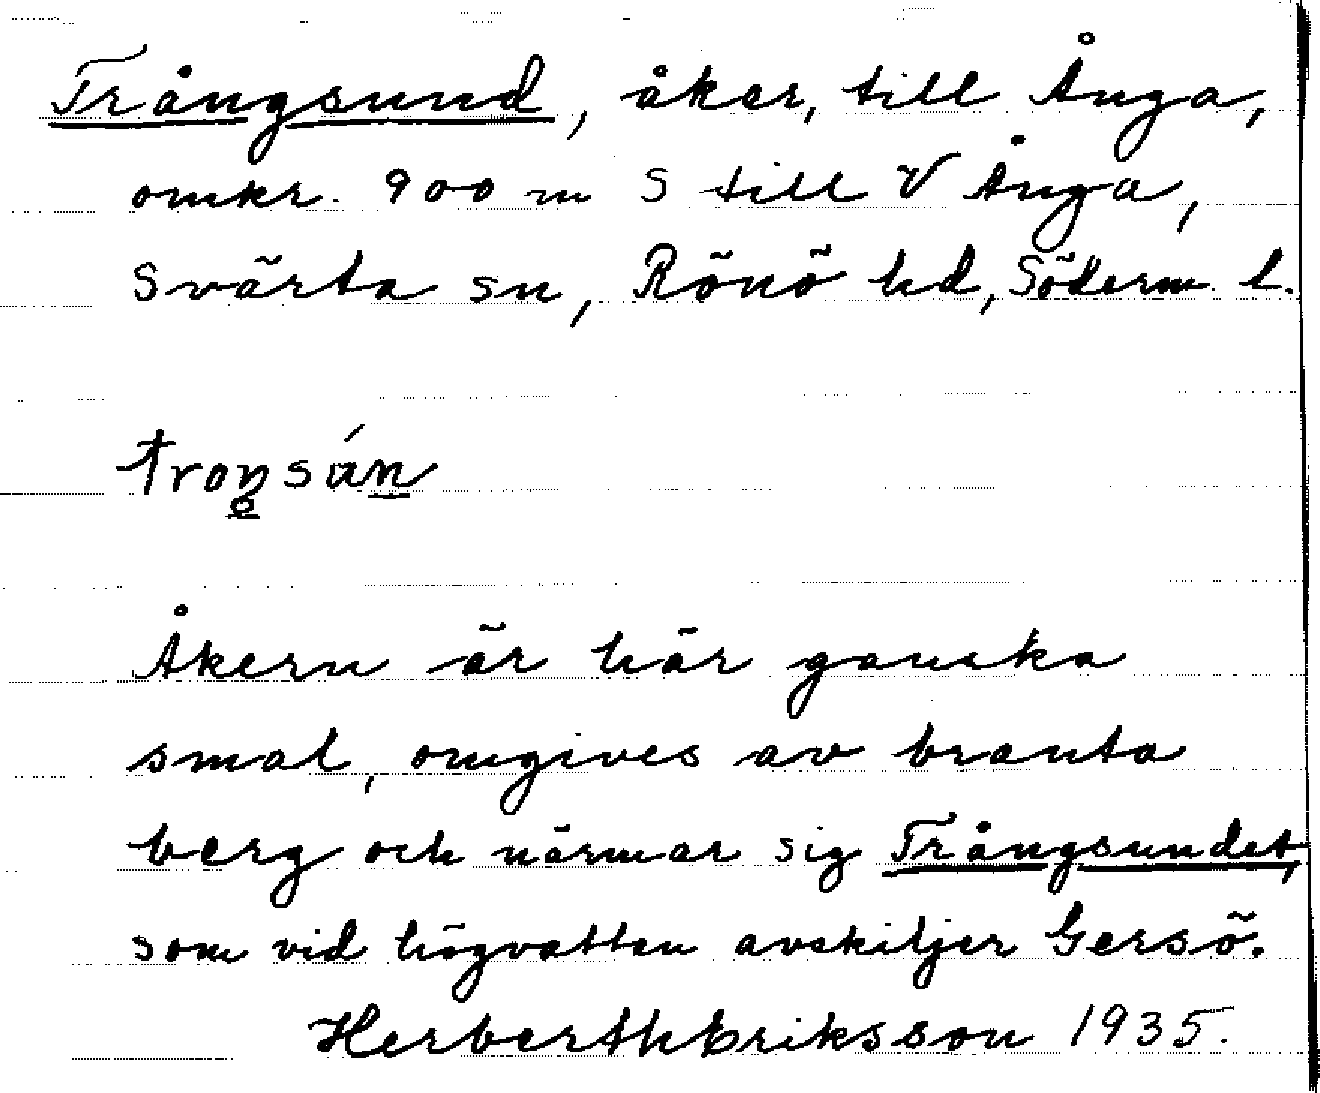 Trångsund, åker, till Ånga,
omkr. 900 m S till V Ånga,
Svärta sn, Rönö hd, Söderm. l.
Åkern är här ganska
smal, omgives av branta
berg och närmar sig Trångsundet,
som vid högvatten avskiljer Gersö.
Herberth Eriksson 1935.